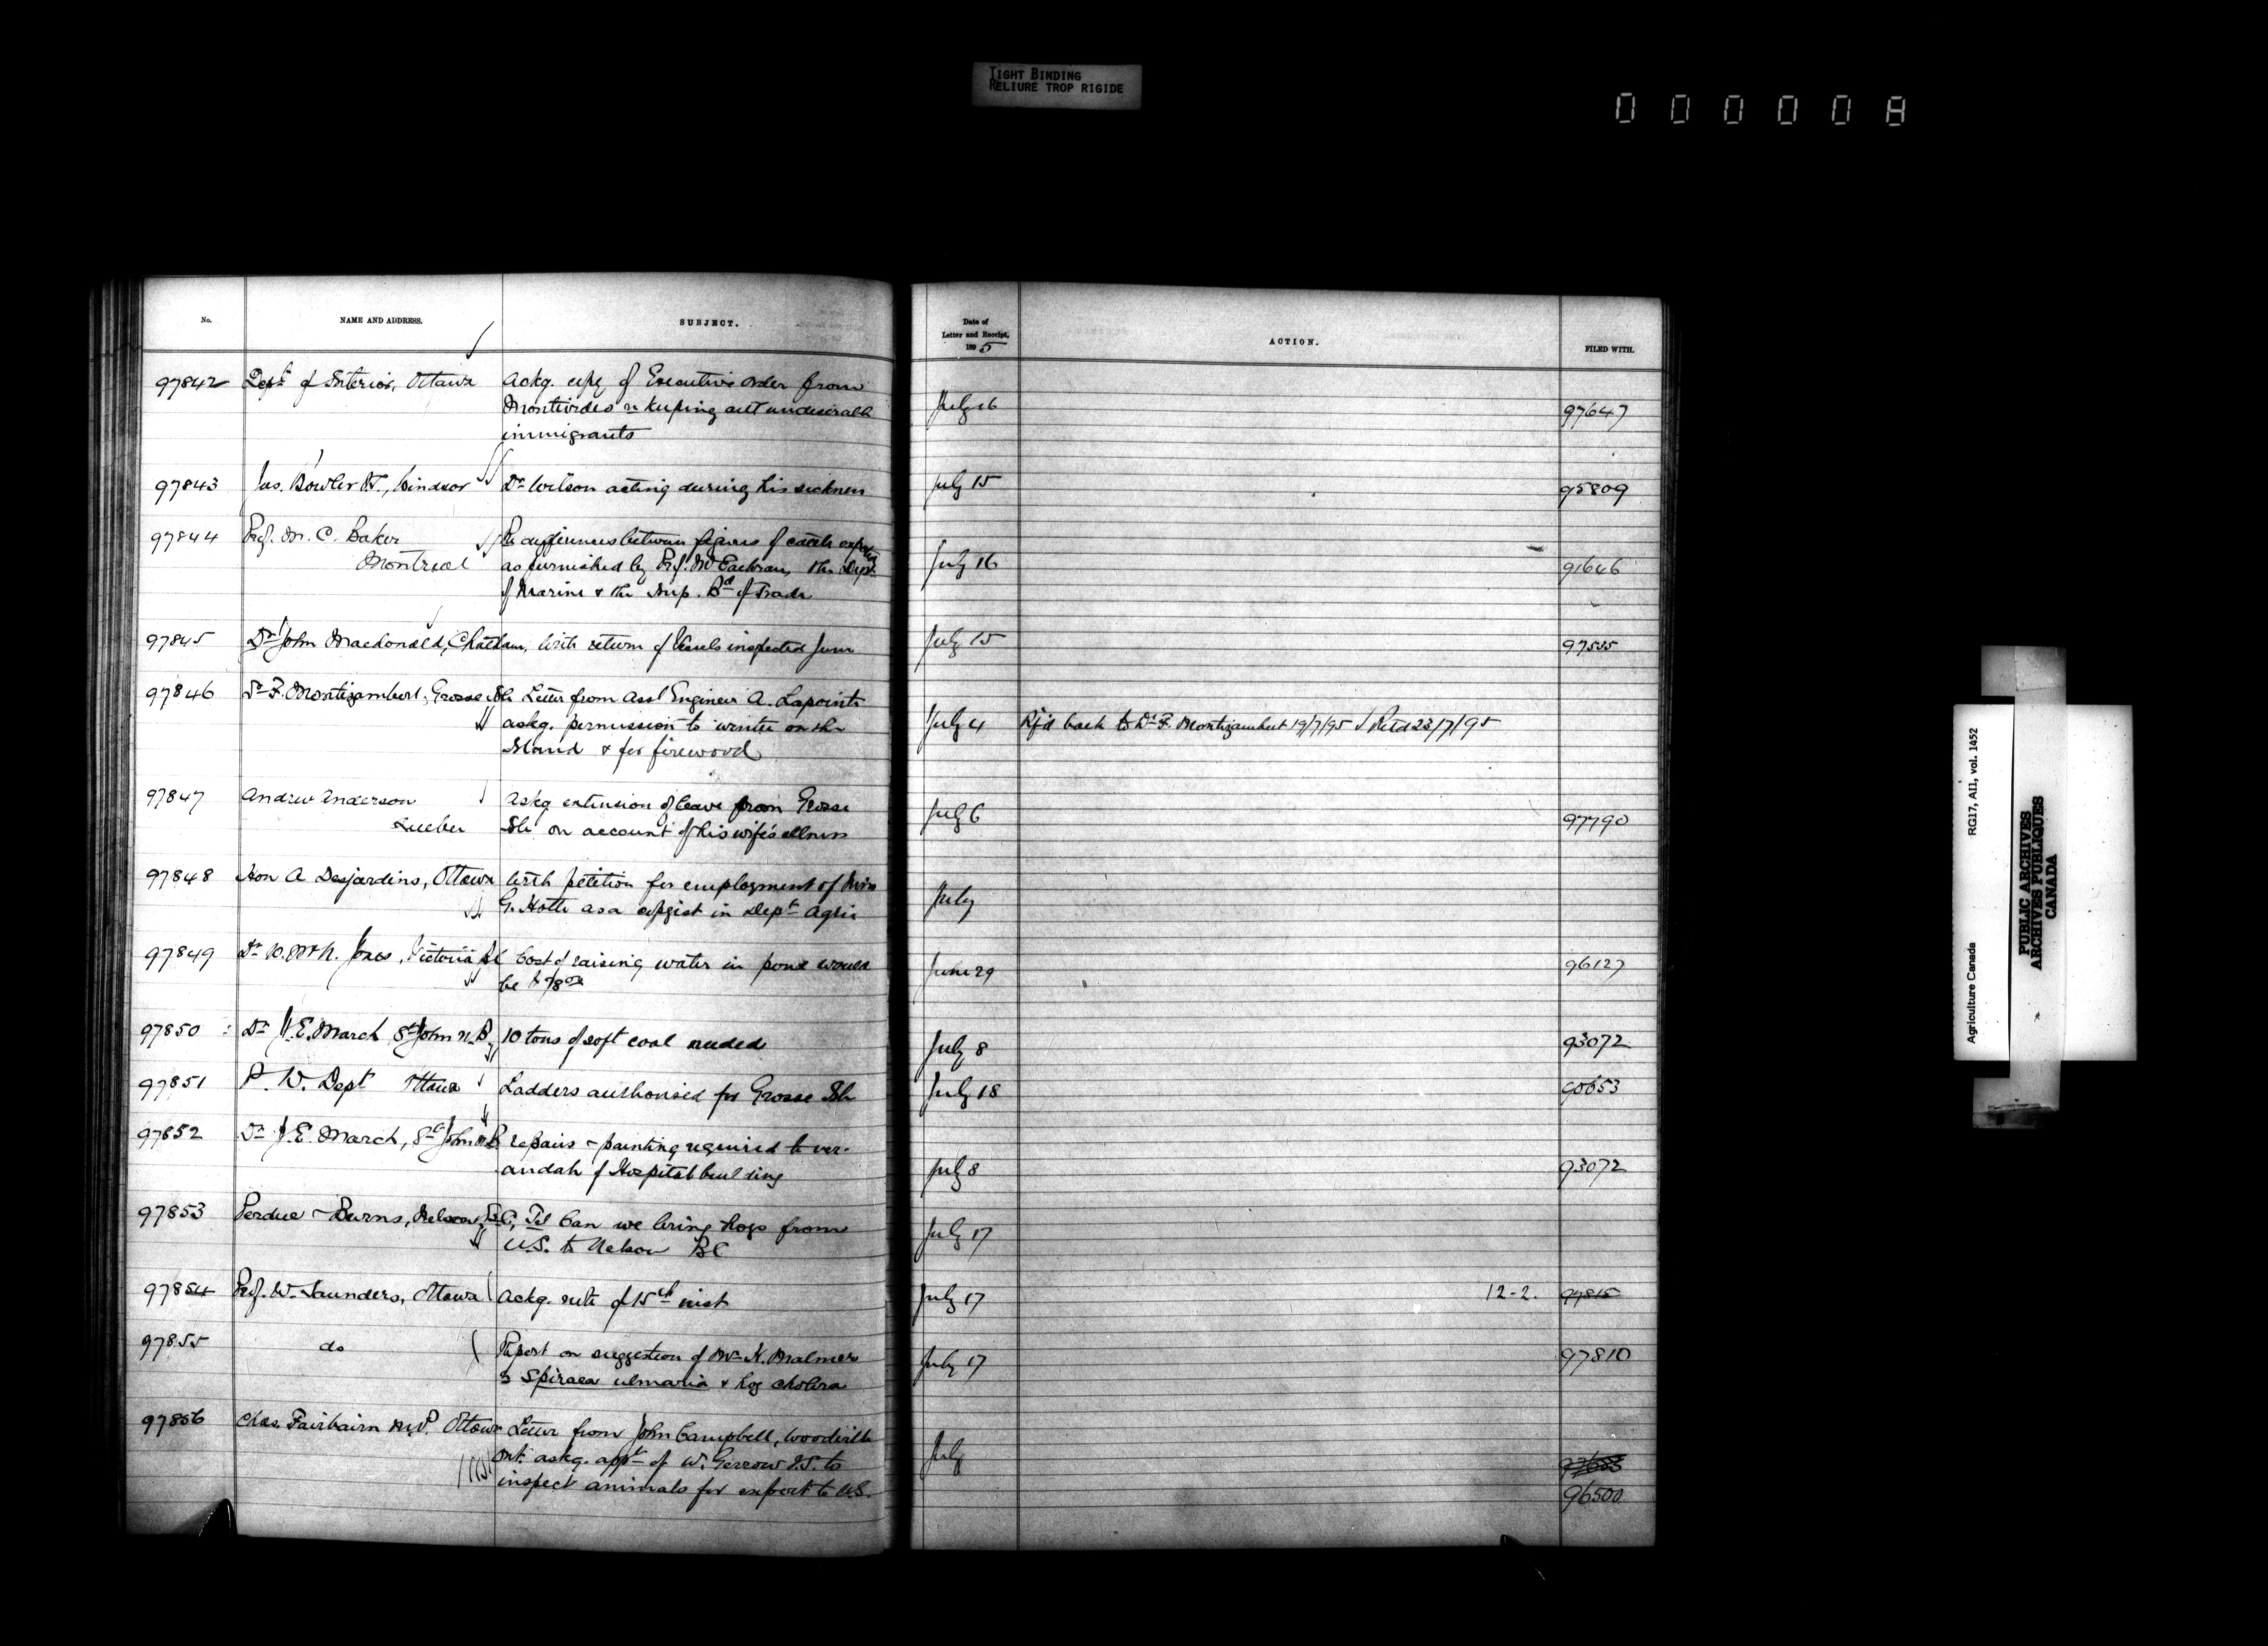 TIGHT BINDING
RELIURE TROP RIGIDE
000008
No.
NAME AND ADDRESS.
SUBJECT.
Date of
Letter and Receipt,
1895
ACTION.
FILED WITH.
97842 Dept of Interior, Ottawa Ackg. copy of Executive Order from
Montivideo re keeping out undesirable July 16 97647
immigrants
97843 Jas. Bowler VS., Windsor Dr Wilson acting during his sickness July 15 95809
97844 Prof. M. C. Baker Re differences between figures of cattle exported
Montreal as furnished by Prof. McEachran, the Dept July 16 91646
of Marine & the Imp. Bd of Trade
97845 Dr John Macdonald, Chatham, With return of Vessels inspected June July 15 97535
97846 Dr F. Montizambert, Grosse Isle Letter from Asst Engineer A. Lapointe
askg. permission to winter on the July 4 Rf'd back to Dr F. Montizambert 19/7/95 Retd 23/7/95
Island & for firewood
97847 Andrew Anderson Askg extension of leave from Grosse
Quebec Isle on account of his wife's illness July 6 97790
97848 Hon A Desjardins, Ottawa With petition for employment of Miss
G. Hotte as a copyist in Dept Agric July
97849 Dr W. McN. Jones, Victoria BC Cost of raising water in pond would
be June 29 96127
97850 Dr J. E. March St John N.B, 10 tons of soft coal needed July 8 93072
97851 P. W. Dept Ottawa Ladders authorised for Grosse Isle July 18 90653
97852 Dr J. E. March, St John N.B. repairs & painting required to ver-
andah of Hospital building July 8 93072
97853 Perdue & Burns, Nelson, B.C, Tel Can we bring hogs from
U.S. to Nelson BC July 17
97854 Prof. W. Saunders, Ottawa Ackg. note of 15th inst July 17 12-2. 97815
97855 do Report on suggestion of Mr K. Malmer July 17 97810
Spiraea ulmaria & hog cholera
97856 Chas. Fairbairn M.P. Ottawa Letter from John Campbell, Woodville
Ont. askg. appt of W. Gerrow V.S. to July 97683
inspect animals for export to U.S. 96500
Agriculture Canada RG17, AI1, vol. 1452
PUBLIC ARCHIVES
ARCHIVES PUBLIQUES
CANADA